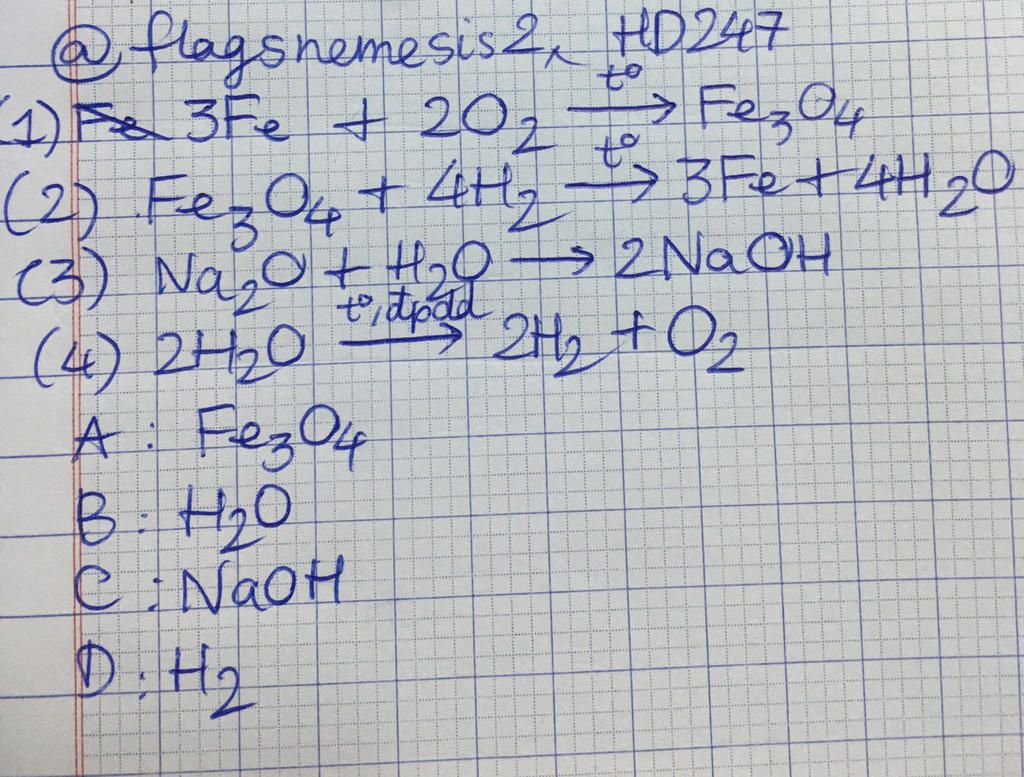 @flagsnemesis2, HD247
(1) Fe 3Fe + 2O2 t° → Fe3O4
(2) Fe3O4 + 4H2 t° → 3Fe + 4H2O
(3) Na2O + H2O → 2NaOH
(4) 2H2O t°, đpdd → 2H2 + O2
A : Fe3O4
B : H2O
C : NaOH
D : H2